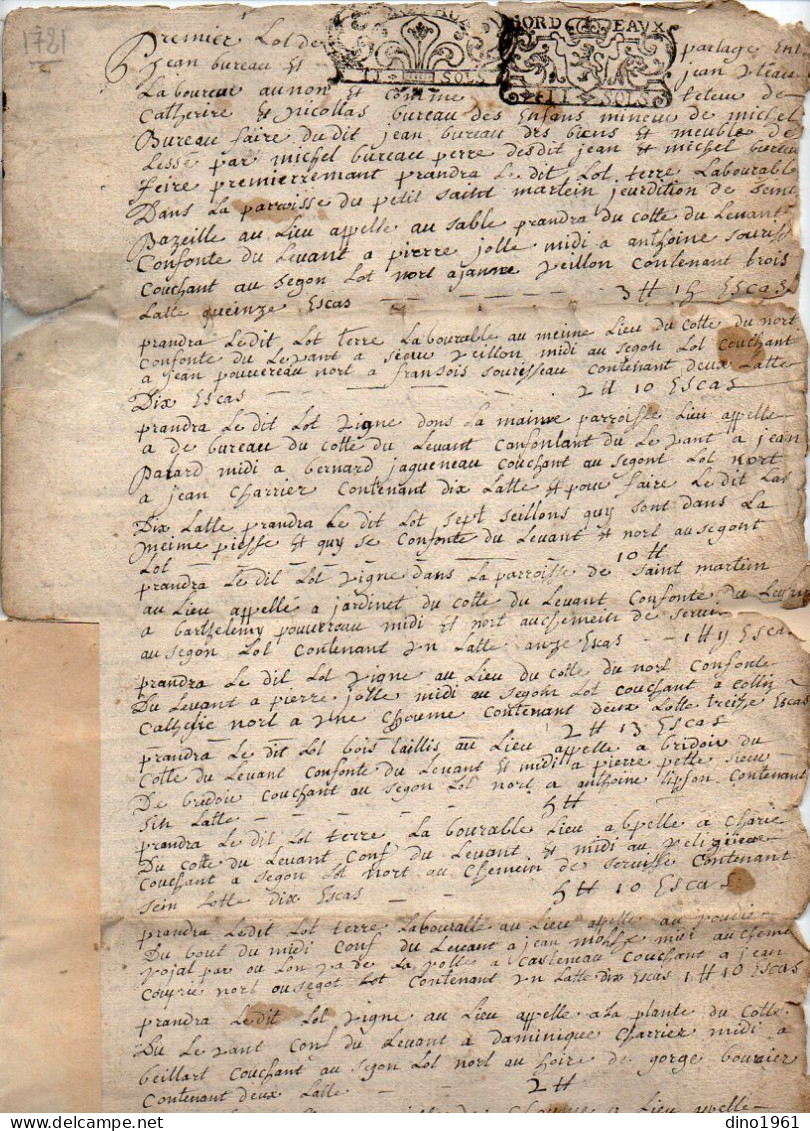 1721
BORDEAUX
II SOLS
II SOLS
Premier Lot de partage Ent
Jean bureau Et jean yteau
Laboureur au non Et comme teteur de
Catherire Et nicollas bureau des Enfans mineur de michel
Bureau faire du dit jean bureau des biens Et meuble de
Lesse par michel bureau perre desdit jean Et michel bureau
feire premierremant prandra Le dit Lot terre Labourable
Dans La parroisse du petit saint martein jeurdition de saint
Bazeille au Lieu appelle au sable prandra du cotte du Levant
Confonte du Levant a pierre jolle midi a anthoine souriss
Couchant au segon Lot nort a janne veillon contenant trois
Latte queinze Escas 3 tt 15 Escas
prandra Ledit Lot terre Labourable au meime Lieu du cotte du nort
Confonte du Levant a veillon midi au segon Lot Couchant
a jean pouvereau nort a fransois sourisseau contenant deux Latte
Dix Escas 2 tt 10 Escas
prandra Le dit Lot vigne dans La maime parroisse Lieu appelle
a de bureau du cotte du Levant Confontant du Levant a jean
Batard midi a bernard jagueneau Couchant au segont Lot nort
a jean Charrier Contenant dix Latte Et pour faire Le dit Las
Dix Latte prandra Le dit Lot sept seillons quy sont dans La
meime piesse Et quy se confonte du Levant Et nort au segont
Lot 10 tt
prandra Le dit Lot vigne dans La parroisse de saint martein
au Lieu appelle a jardinet du cotte du Levant Confonte du Levan
a barthelemy pouvereau midi Et nort au chemein de servi
au segon Lot Contenant yn Latte onze Escas 1 tt 11 Escas
prandra Le dit Lot vigne au Lieu du cotte du nort Confonte
Du Levant a pierre jolle midi au segon Lot couchant a collin
Catherie nort a yne Choume contenant deux Lotte treise Escas
2 tt 13 Escas
prandra Le dit Lot bois taillis au Lieu appelle a bridoir du
Cotte du Levant Confonte du Levant Et midi a pierre petit sieur
De bridoir Couchant au segon Lot nort a anthoine Contenant
Sin Latte 5 tt
prandra Le dit Lot terre La bourable Lieu appelle a Charie
Du cotte du Levant Conf du Levant Et midi au
Couchant a segon Lot nort au Chemein de servisse Contenant
sein Lotte dix Escas 5 tt 10 Escas
prandra Ledit Lot terre Labouralle au Lieu appelle au
Du bout du midi Conf du Levant a jean midi au cheme
rojal par ou Lon va de La a Casteneau Couchant a jean
Couprie nort ou segot Lot Contenant yn Latte dix Escas 1 tt 10 Escas
prandra Ledit Lot vigne au Lieu appelle a La plante du cotte
Du Levant Conf du Levant a Daminique Charrier midi a
beillart Couchant au segon Lot nort au hoire de gorge bouzier
Contenant deux Latte 2 tt
Lieu apelle
dino1961